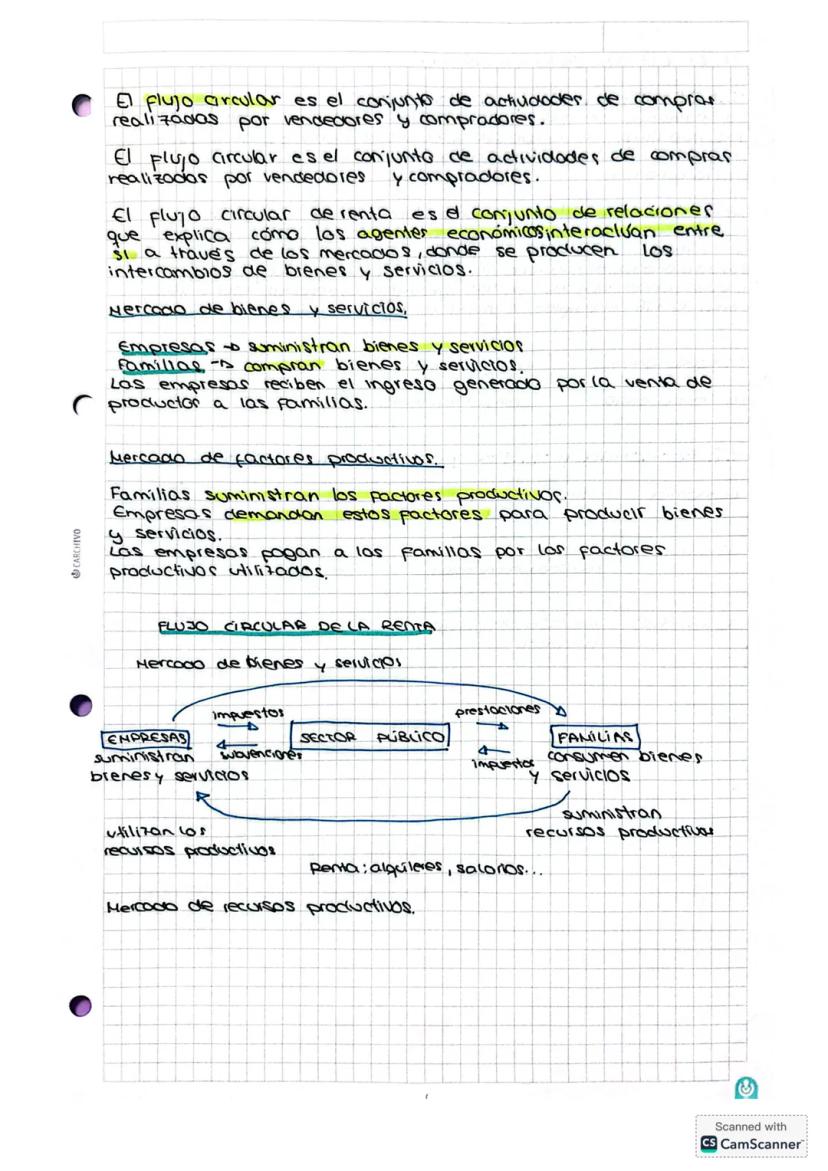 El flujo circular es el conjunto de actividades de compras
realizadas por vendedores y compradores.
El flujo circular es el conjunto de actividades de compras
realizados por vendedores y compradores.
El flujo circular de renta es el conjunto de relaciones
que explica cómo los agentes económicos interactúan entre
sí a través de los mercados, donde se producen los
intercambios de bienes y servicios.
Mercado de bienes y servicios.
Empresas → suministran bienes y servicios
Familias → compran bienes y servicios.
Las empresas reciben el ingreso generado por la venta de
productos a las familias.
Mercado de factores productivos.
Familias suministran los factores productivos.
Empresas demandan estos factores para producir bienes
y servicios.
Las empresas pagan a las familias por los factores
productivos utilizados.
CARCHIVO
FLUJO CIRCULAR DE LA RENTA
Mercado de bienes y servicios
impuestos
prestaciones
EMPRESAS
SECTOR PÚBLICO
FAMILIAS
suministran
bienes y servicios
subvenciones
impuestos
consumen bienes
y servicios
suministran
recursos productivos
utilizan los
recursos productivos
Renta: alquileres, salarios...
Mercado de recursos productivos.
Scanned with
CS CamScanner